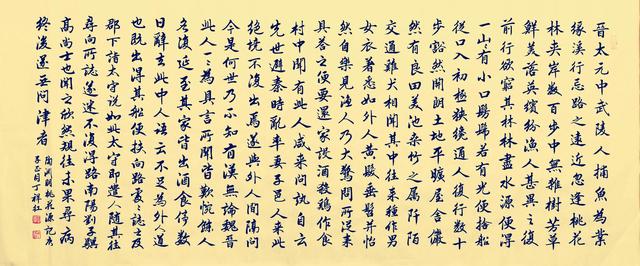 晉太元中武陵人捕魚為業
緣溪行忘路之遠近忽逢桃花
林夾岸數百步中無雜樹芳草
鮮美落英繽紛漁人甚異之復
前行欲窮其林林盡水源便得
一山〻有小口髣髴若有光便捨船
從口入初極狹纔通人復行數十
步豁然開朗土地平曠屋舍儼
然有良田美池桑竹之屬阡陌
交通雞犬相聞其中往來種作男
女衣著悉如外人黃髮垂髫並怡
然自樂見漁人乃大驚問所從來
具答之便要還家設酒殺雞作食
村中聞有此人咸來問訊自云
先世避秦時亂率妻子邑人來此
絕境不復出焉遂與外人間隔問
今是何世乃不知有漢無論魏晉
此人一〻為具言所聞皆歎惋餘人
各復延至其家皆出酒食停數
日辭去此中人語云不足為外人道
也既出得其船便扶向路處〻誌之及
郡下詣太守說如此太守即遣人隨其往
尋向所誌遂迷不復得路南陽劉子驥
高尚士也聞之欣然規往未果尋病
終後遂無問津者
陶淵明桃花源記庚
子正月丁祥紅